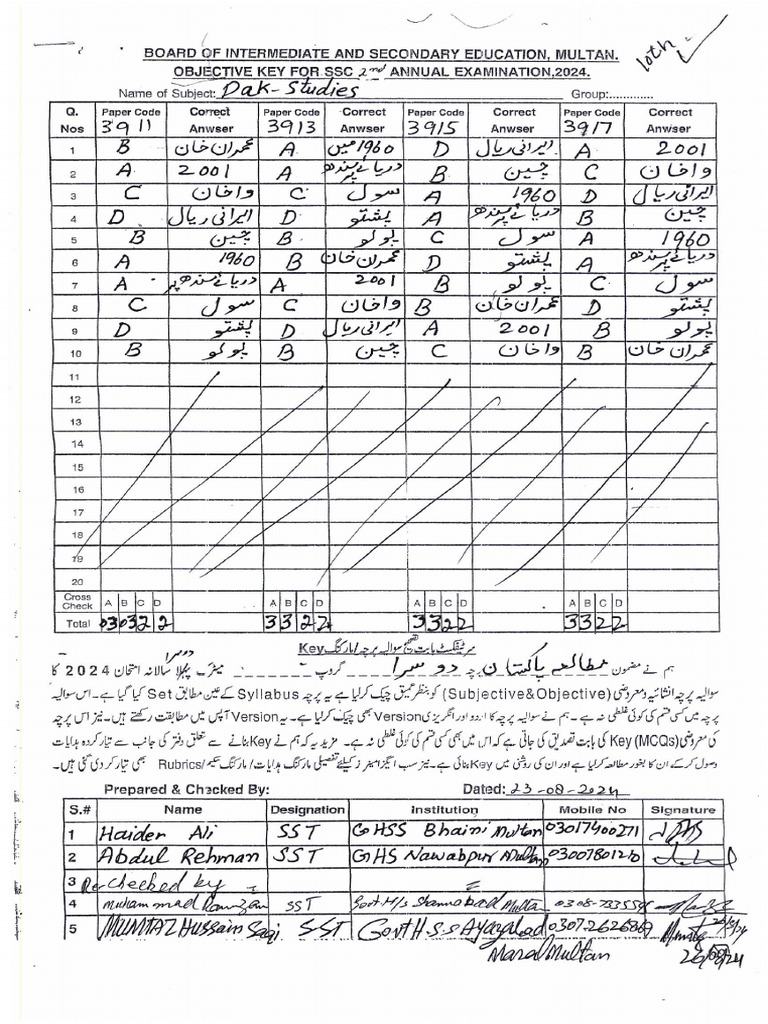 10th
BOARD OF INTERMEDIATE AND SECONDARY EDUCATION, MULTAN.
OBJECTIVE KEY FOR SSC 2nd ANNUAL EXAMINATION,2024.
Name of Subject: Pak-Studies Group:............
Q. Nos Paper Code 3911 Correct Anwser Paper Code 3913 Correct Anwser Paper Code 3915 Correct Anwser Paper Code 3917 Correct Anwser
1 B عمران خان A 1960 میں D ایرانی ریال A 2001
2 A 2001 A دریائے سندھ پر B چین C واخان
3 C واخان C سول A 1960 D ایرانی ریال
4 D ایرانی ریال D پشتو A دریائے سندھ پر B چین
5 B چین B پولو C سول A 1960
6 A 1960 B عمران خان D پشتو A دریائے سندھ پر
7 A دریائے سندھ پر A 2001 B پولو C سول
8 C سول C واخان B عمران خان D پشتو
9 D پشتو D ایرانی ریال A 2001 B پولو
10 B پولو B چین C واخان B عمران خان
11
12
13
14
15
16
17
18
19
20
Cross Check A B C D A B C D A B C D A B C D
Total 3 3 2 2 3 3 2 2 3 3 2 2 3 3 2 2
سرٹیفکیٹ بابت تصحیح سوالیہ پرچہ / مارکنگ Key
ہم نے مضمون مطالعہ پاکستان پرچہ دوسرا گروپ - میٹرک پہلا دوسرا سالانہ امتحان 2024 کا
سوالیہ پرچہ انشائیہ و معروضی (Subjective&Objective) کو بنظر عمیق چیک کر لیا ہے یہ پرچہ Syllabus کے عین مطابق Set کیا گیا ہے۔ اس سوالیہ
پرچہ میں کسی قسم کی کوئی غلطی نہ ہے۔ ہم نے سوالیہ پرچہ کا اردو اور انگریزی Version بھی چیک کر لیا ہے۔ یہ Version آپس میں مطابقت رکھتے ہیں۔ نیز اس پرچہ
کی معروضی (MCQs) Key کی بابت تصدیق کی جاتی ہے کہ اس میں بھی کسی قسم کی کوئی غلطی نہ ہے۔ مزید یہ کہ ہم نے Key بنانے سے متعلق دفتر کی جانب سے تیار کردہ ہدایات
وصول کر کے ان کا بغور مطالعہ کر لیا ہے اور ان کی روشنی میں Key بنائی ہے۔ نیز سب ایگزامینرز کیلئے تفصیلی مارکنگ ہدایات / مارکنگ سکیم / Rubrics بھی تیار کر دی گئی ہیں۔
Prepared & Checked By: Dated: 23-08-2024
S.# Name Designation Institution Mobile No Signature
1 Haider Ali SST GHSS Bhaini Multan 03017400271
2 Abdul Rehman SST GHS Nawabpur Multan
3 Re-Checked by
4 Muhammad Ramzan SST Govt H/s Shamabad Multan
5 Mumtaz Hussain Saqi SST Govt H.S.S Ayazabad
Maral Multan